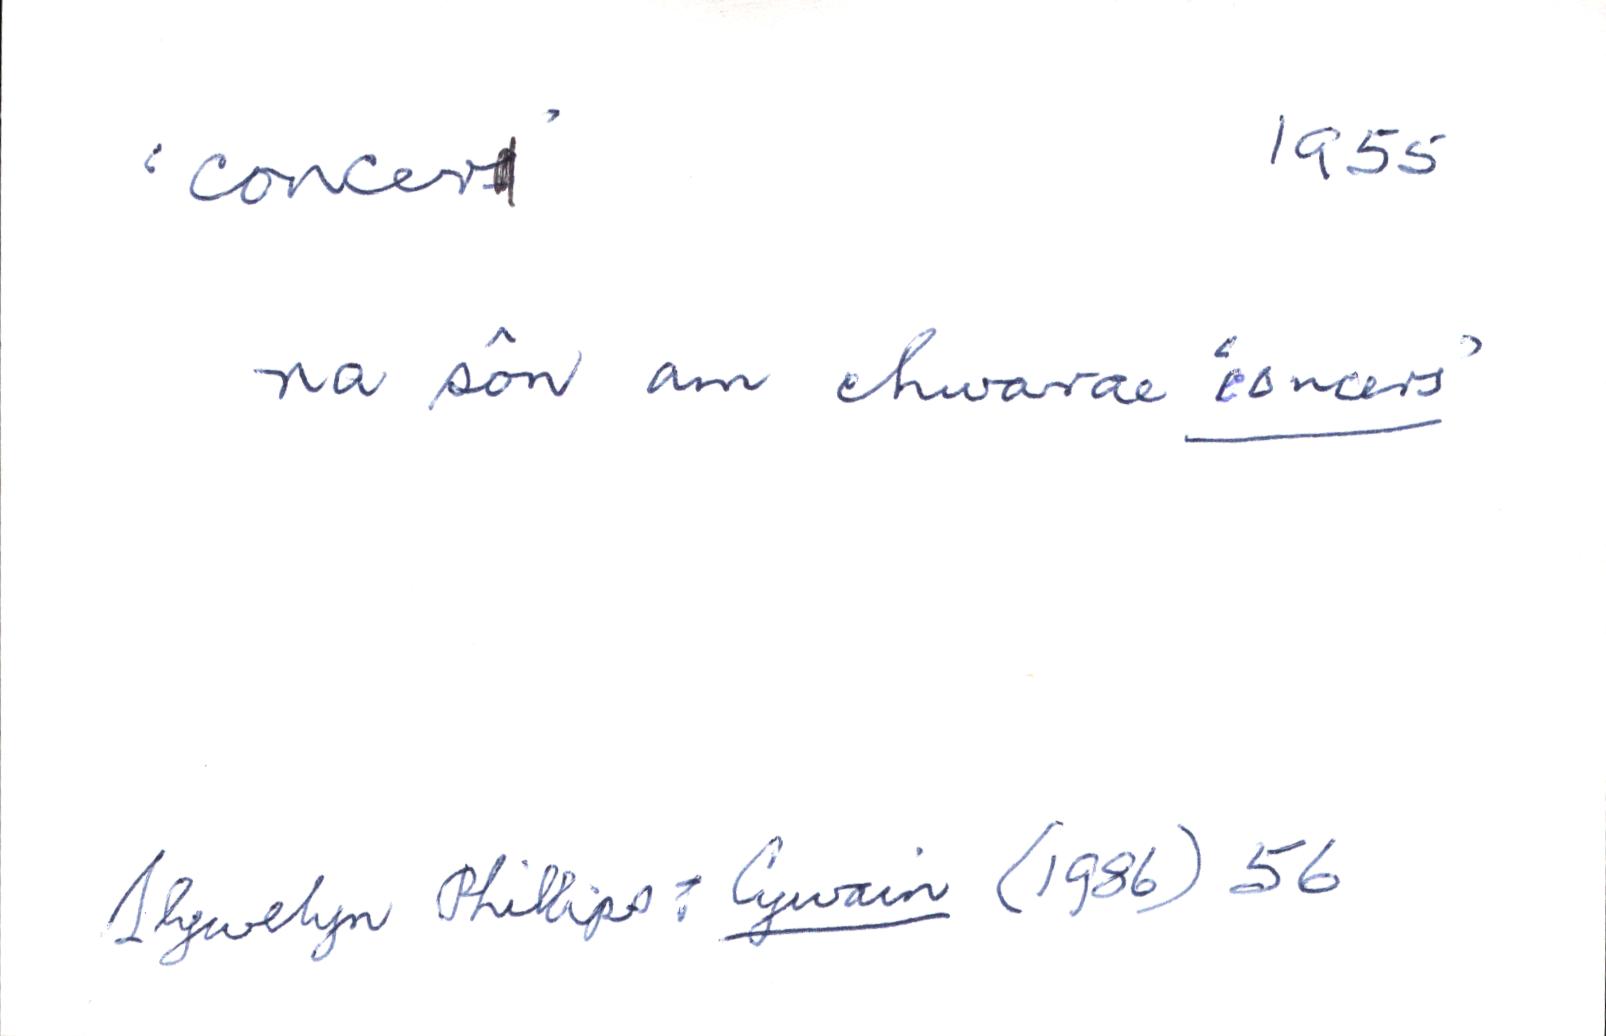 'concer' 1955
na sôn am chwarae 'concers'
Llywelyn Phillips: Cywain (1986) 56